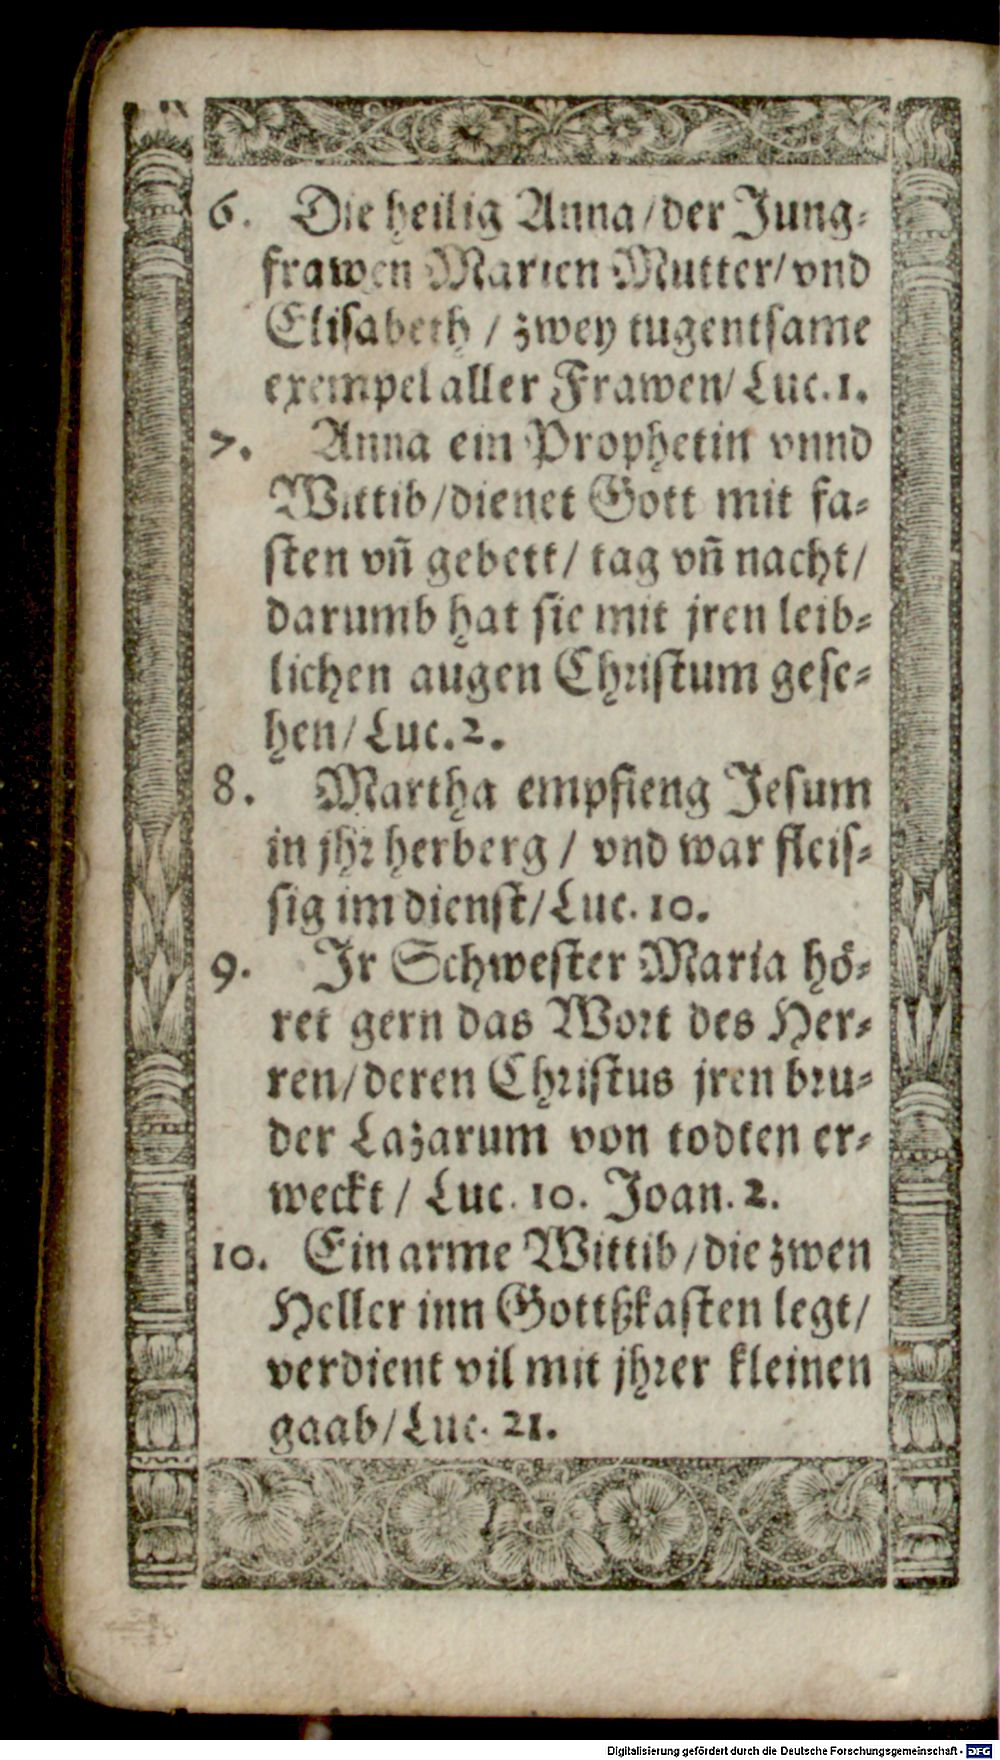 6. Die heilig Anna/der Jung⸗
frawen Marien Mutter/vnd
Elisabeth / zwey tugentsame
exempel aller Frawen/ Luc. 1.
7. Anna ein Prophetin vnnd
Wittib/dienet Gott mit fa⸗
sten vñ gebett/ tag vñ nacht/
darumb hat sie mit jren leib⸗
lichen augen Christum gese⸗
hen/ Luc. 2.
8. Martha empfieng Jesum
in jhr herberg / vnd war fleis⸗
sig im dienst/Luc. 10.
9. Ir Schwester Maria hö⸗
ret gern das Wort des Her⸗
ren/deren Christus jren bru⸗
der Lazarum von todten er⸗
weckt / Luc. 10. Joan. 2.
10. Ein arme Wittib/die zwen
Heller inn Gottßkasten legt/
verdient vil mit jhrer kleinen
gaab/Luc. 21.
Digitalisierung gefördert durch die Deutsche Forschungsgemeinschaft - DFG